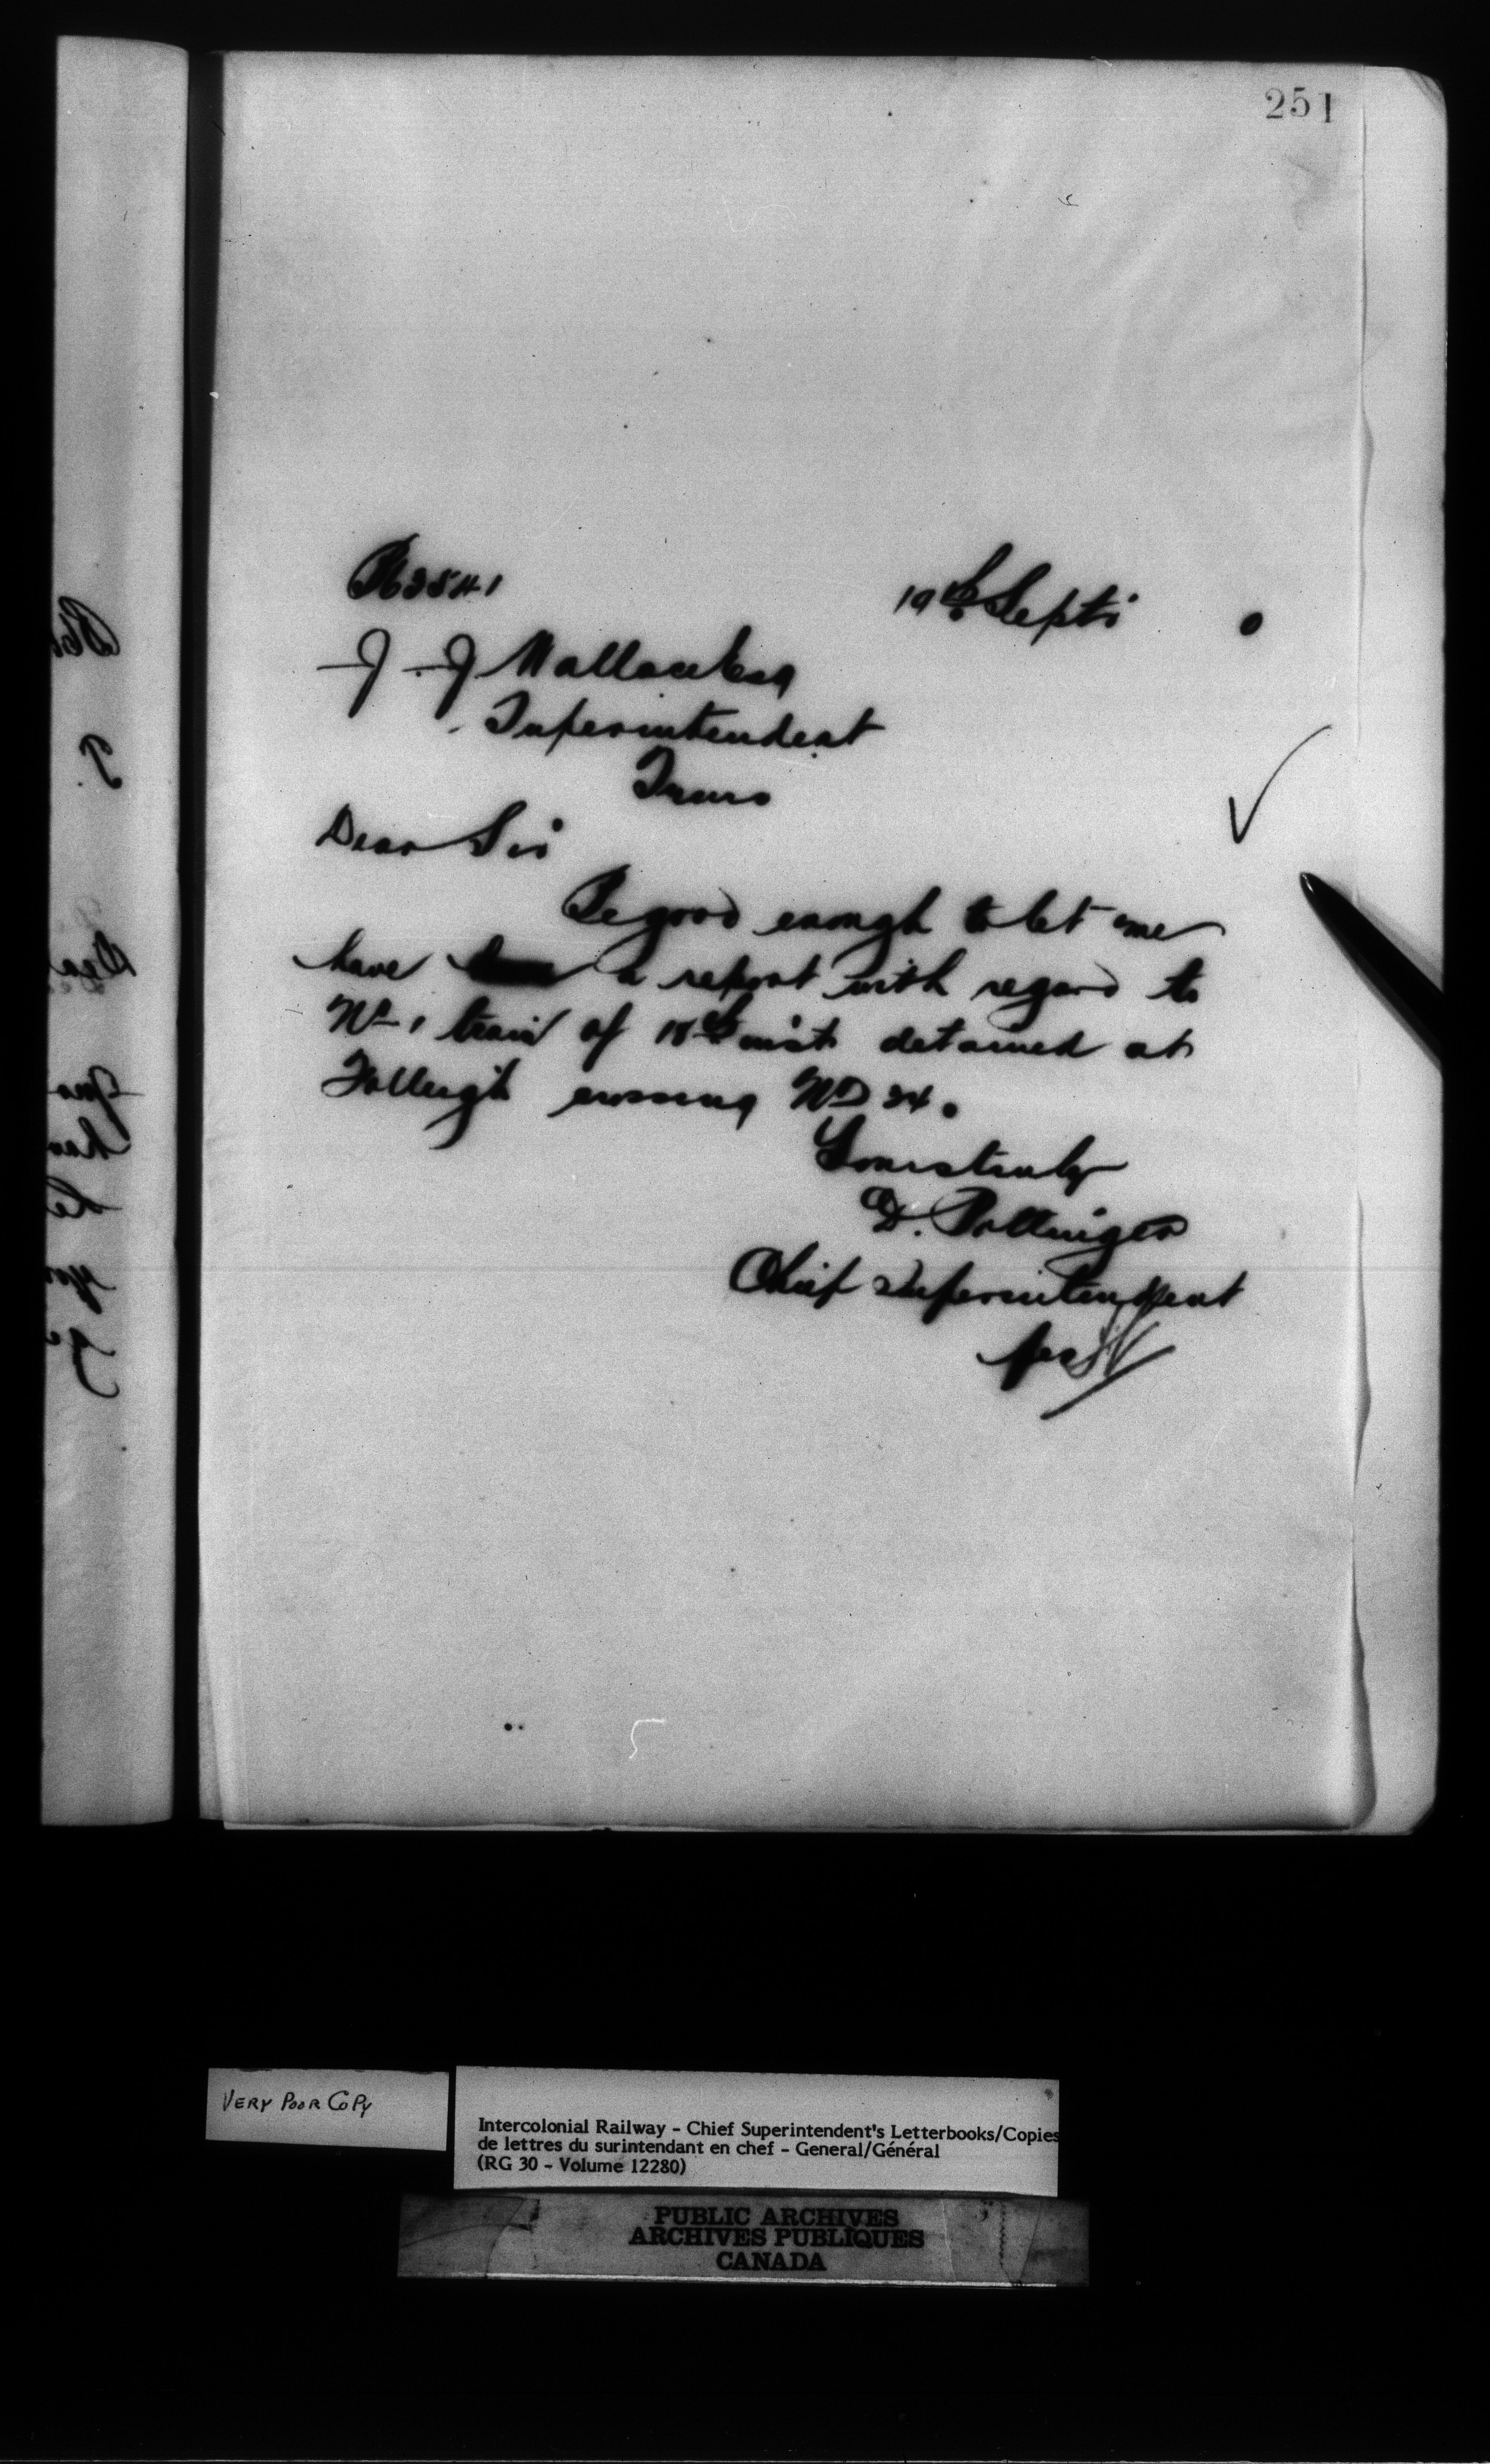 251
19th Septr 0
J. J. Wallace Esq
Superintendent
Truro
Dear Sir
Be good enough to let me
have a report with regard to
No 1 train of 18th inst detained at
Folleigh crossing No 24.
Yours truly
D. Pottinger
Chief Superintendent
per
VERY POOR COPY
Intercolonial Railway - Chief Superintendent's Letterbooks/Copies
de lettres du surintendant en chef - General/Général
(RG 30 - Volume 12280)
PUBLIC ARCHIVES
ARCHIVES PUBLIQUES
CANADA